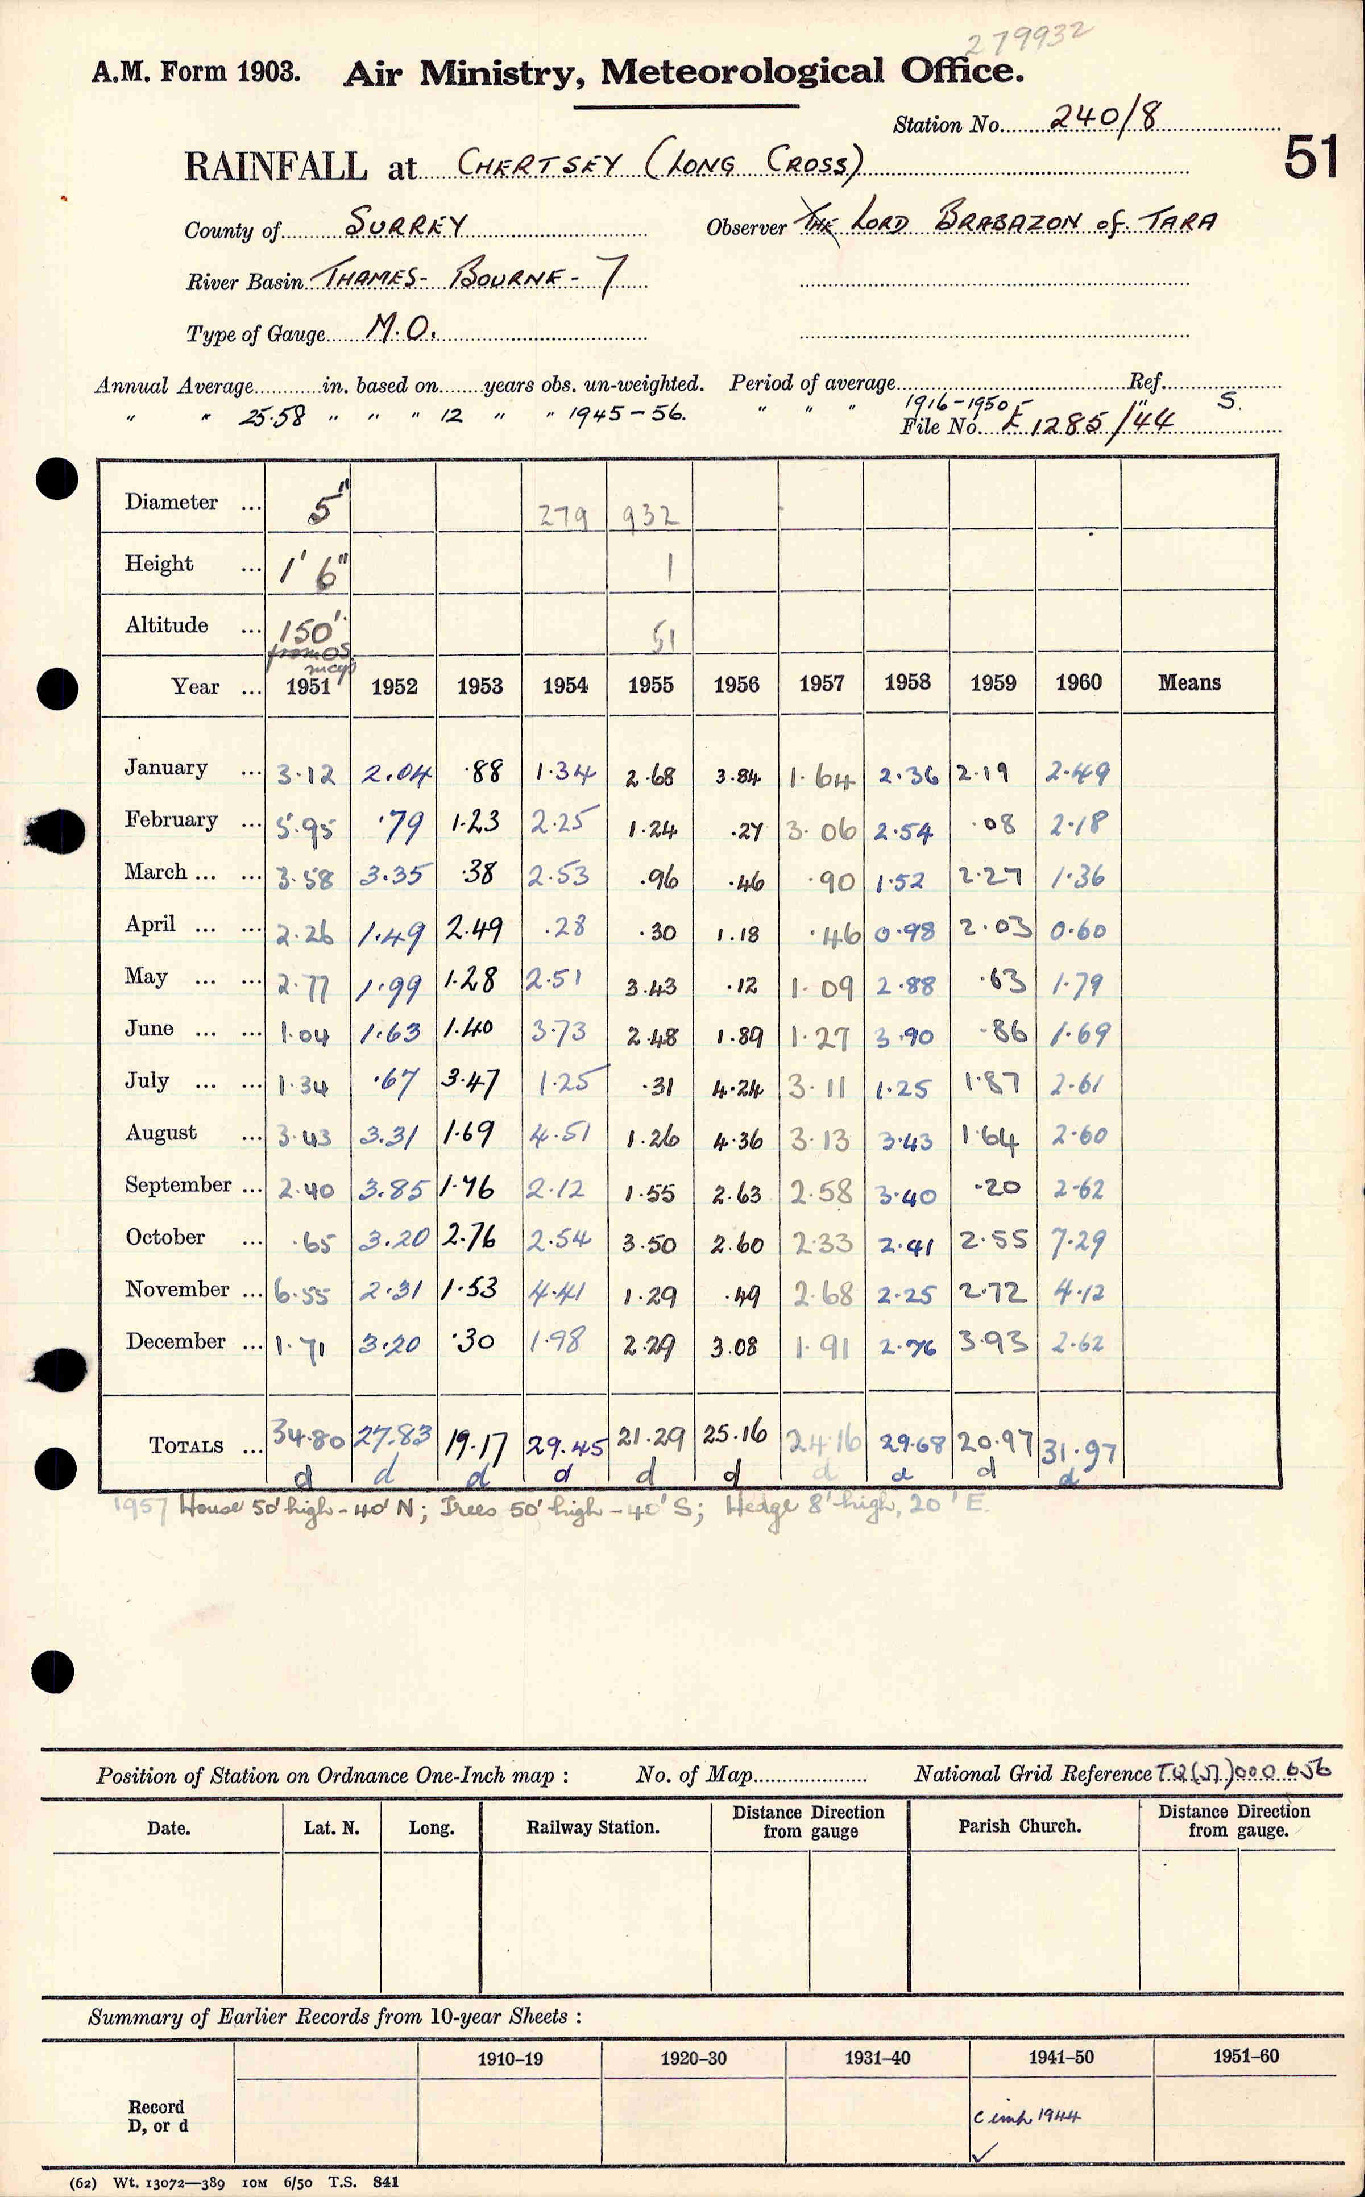 279932
A.M. Form 1903. Air Ministry, Meteorological Office.
Station No. 240/8
51
RAINFALL at CHERTSEY (LONG CROSS)
County of SURREY Observer THE LORD BRABAZON of TARA
River Basin THAMES - BOURNE - 7
Type of Gauge M.O.
Annual Average in. based on years obs. un-weighted. Period of average Ref.
" " 25.58 " " " 12 " " 1945-56. " " " 1916-1950 " S.
File No. E 1285/44
Diameter ... 5" 279 932
Height ... 1' 6" 1
Altitude ... 150' 51
from OS
map
Year ... 1951 1952 1953 1954 1955 1956 1957 1958 1959 1960 Means
January ... 3.12 2.04 .88 1.34 2.68 3.84 1.64 2.36 2.19 2.49
February ... 5.95 .79 1.23 2.25 1.24 .27 3.06 2.54 .08 2.18
March ... ... 3.58 3.35 .38 2.53 .96 .46 .90 1.52 2.27 1.36
April ... ... 2.26 1.49 2.49 .28 .30 1.18 .46 0.98 2.03 0.60
May ... ... 2.77 1.99 1.28 2.51 3.43 .12 1.09 2.88 .63 1.79
June ... ... 1.04 1.63 1.40 3.73 2.48 1.89 1.27 3.90 .86 1.69
July ... ... 1.34 .67 3.47 1.25 .31 4.24 3.11 1.25 1.87 2.61
August ... 3.43 3.31 1.69 4.51 1.26 4.36 3.13 3.43 1.64 2.60
September ... 2.40 3.85 1.76 2.12 1.55 2.63 2.58 3.40 .20 2.62
October ... .65 3.20 2.76 2.54 3.50 2.60 2.33 2.41 2.55 7.29
November ... 6.55 2.31 1.53 4.41 1.29 .49 2.68 2.25 2.72 4.12
December ... 1.71 3.20 .30 1.98 2.29 3.08 1.91 2.76 3.93 2.62
TOTALS ... 34.80 27.83 19.17 29.45 21.29 25.16 24.16 29.68 20.97 31.97
d d d d d d d d d d
1957 House 50' high - 40' N; Trees 50' high - 40' S; Hedge 8' high, 20' E.
Position of Station on Ordnance One-Inch map : No. of Map National Grid Reference TQ (51) 000 656
Date. Lat. N. Long. Railway Station. Distance Direction from gauge Parish Church. Distance Direction from gauge.
Summary of Earlier Records from 10-year Sheets :
1910–19 1920–30 1931–40 1941–50 1951–60
Record
D, or d
1944
✓
(62) Wt. 13072—389 10M 6/50 T.S. 841